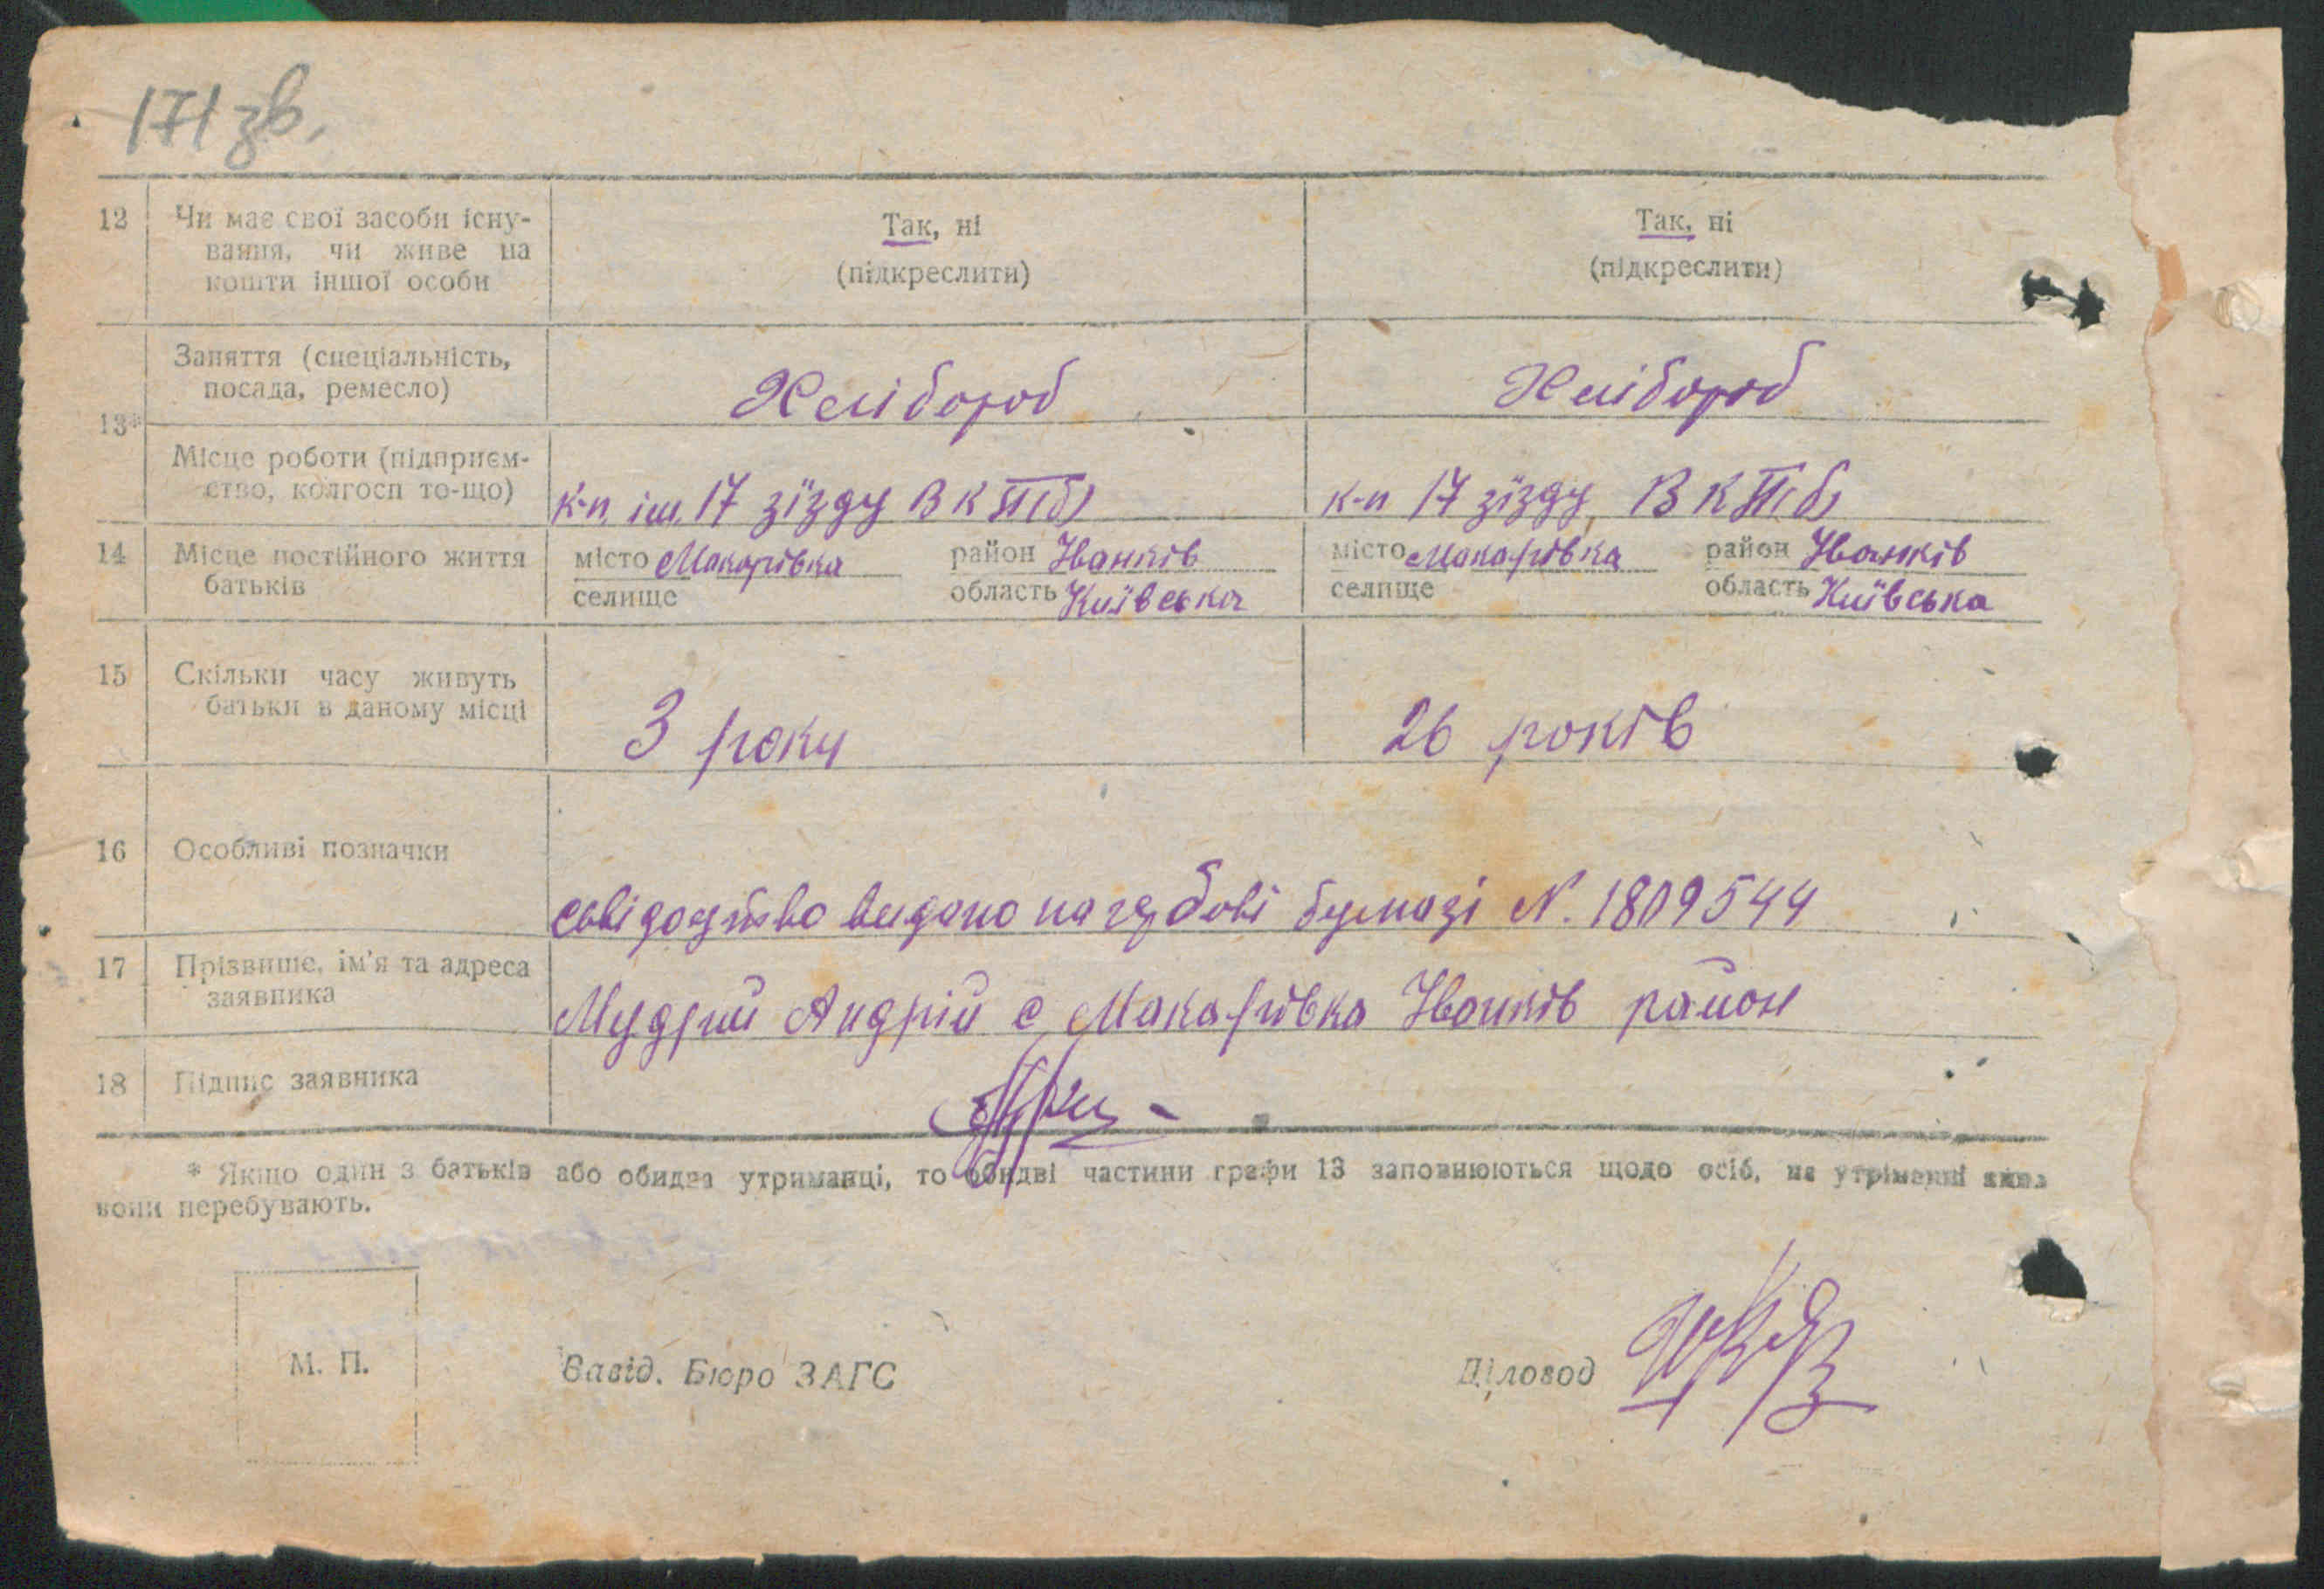 171 зв.
12 Чи має свої засоби існу-
вання, чи живе на
кошти іншої особи
Так, ні
(підкреслити)
Так, ні
(підкреслити)
13*
Заняття (спеціальність,
посада, ремесло)
Хлібороб
Хлібороб
Місце роботи (підприєм-
ство, колгосп то-що)
к-п ім. 17 зїзду ВКП(б)
к-п 17 зїзду ВКП(б)
14 Місце постійного життя
батьків
місто Макарівка район Іванків
селище область Київська
місто Макарівка район Іванків
селище область Київська
15 Скільки часу живуть
батьки в даному місці
3 роки
26 років
16 Особливі позначки
видано на гербові бумазі N. 1809544
17 Прізвище, ім'я та адреса
заявника
Мудрий Андрій с Макарівка Іванків район
18 Підпис заявника
* Якщо один з батьків або обидва утриманці, то обидві частини графи 13 заповнюються щодо осіб, на утріманні яких
вони перебувають.
М. П.
Завід. Бюро ЗАГС
Діловод